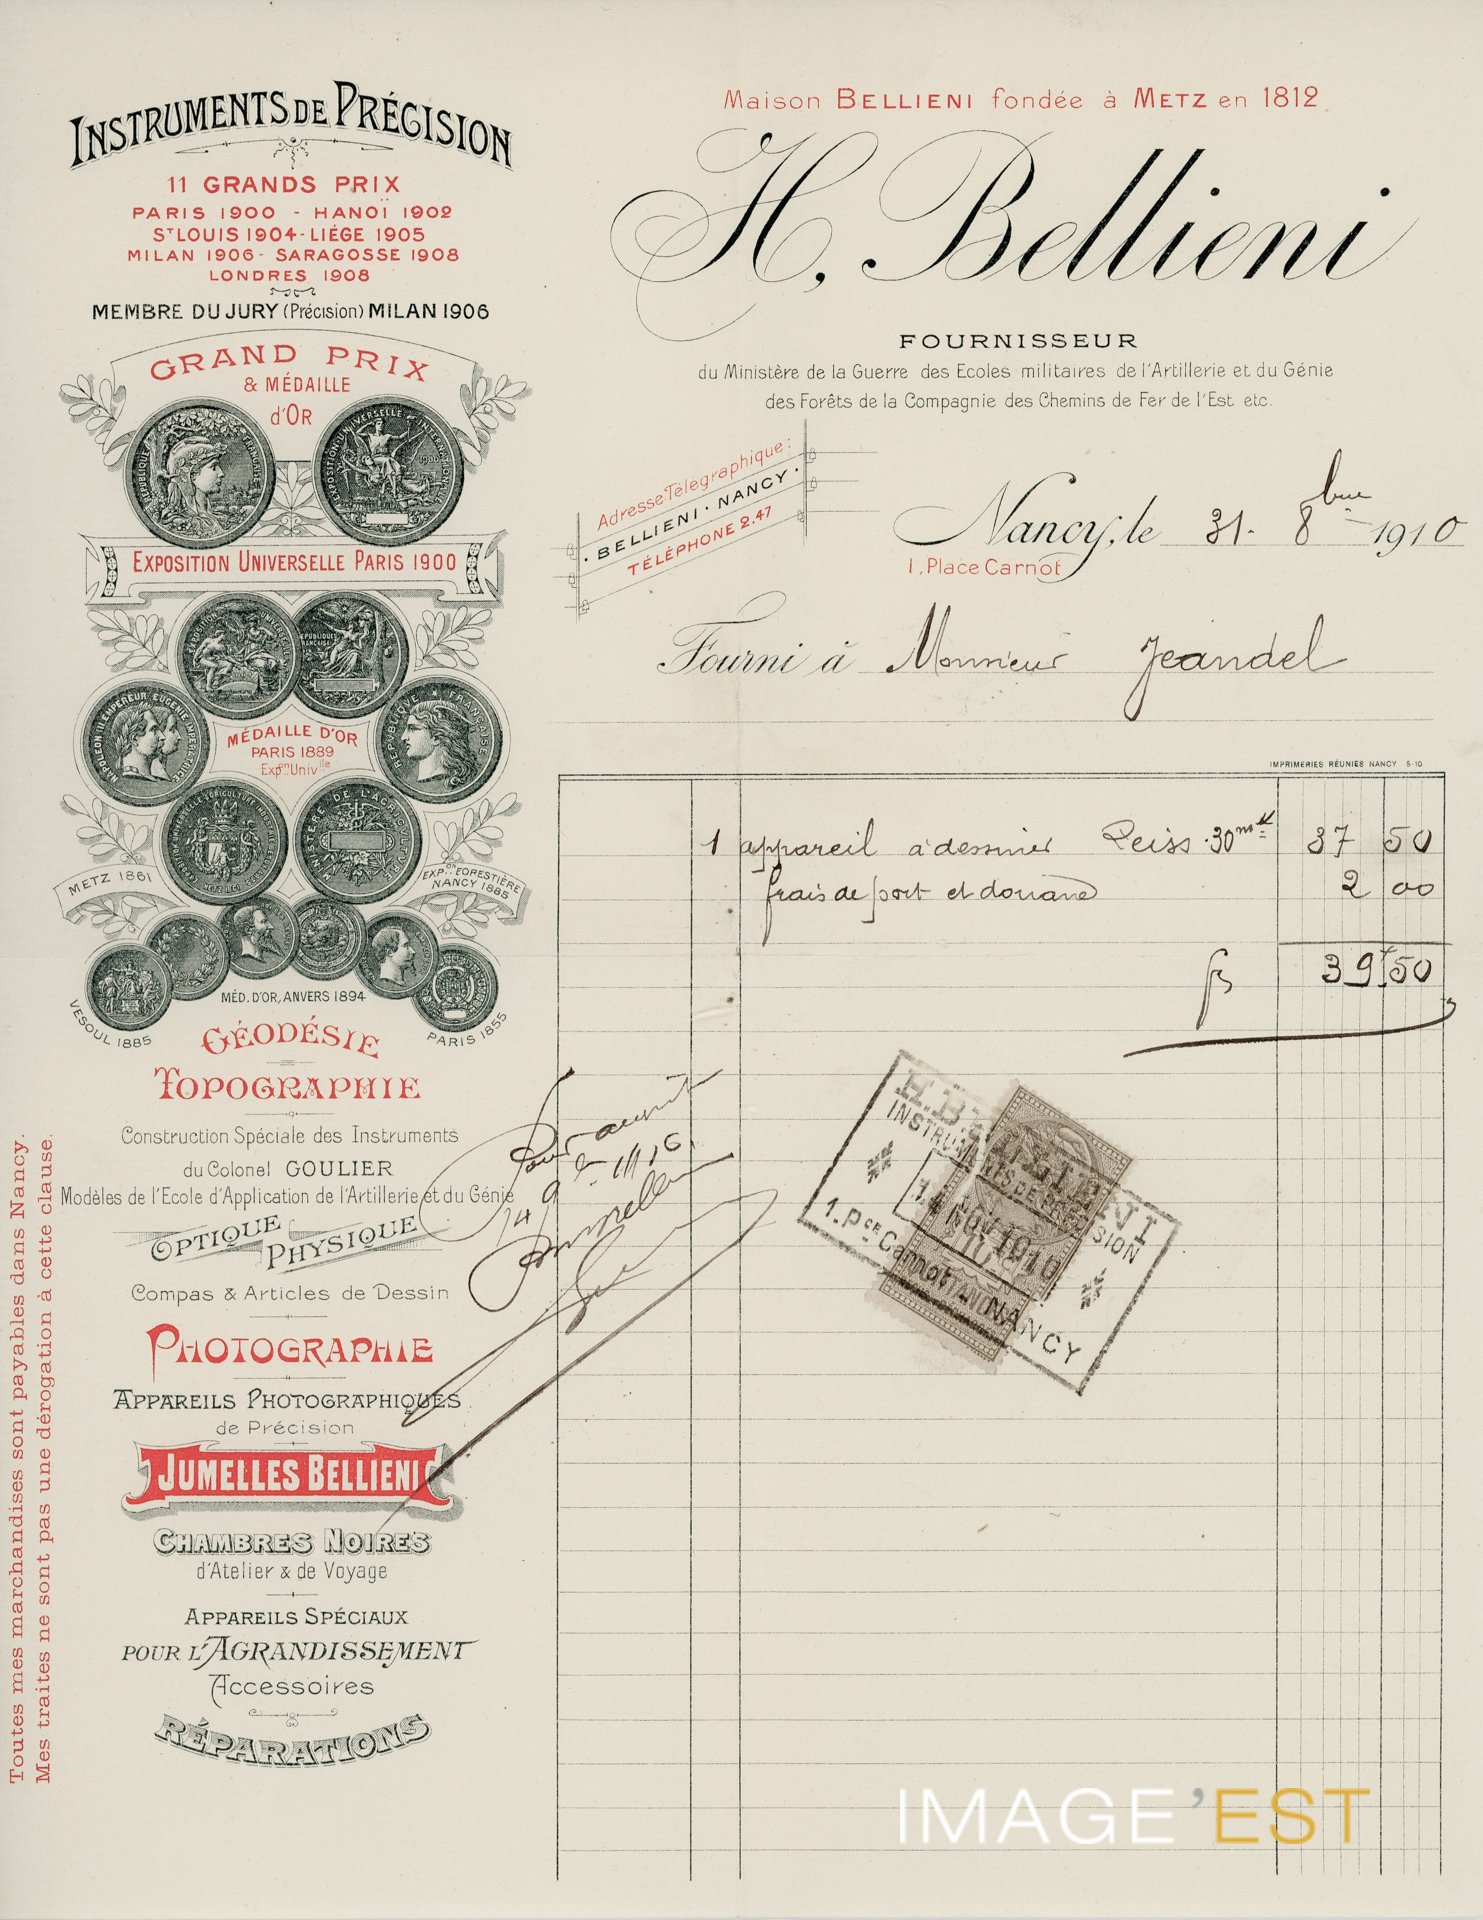 INSTRUMENTS DE PRÉCISION
11 GRANDS PRIX
PARIS 1900 - HANOÏ 1902
ST LOUIS 1904 - LIÉGE 1905
MILAN 1906 - SARAGOSSE 1908
LONDRES 1908
MEMBRE DU JURY (Précision) MILAN 1906
GRAND PRIX
& MÉDAILLE
d'OR
RÉPUBLIQUE FRANÇAISE
EXPOSITION UNIVERSELLE INTERNATIONALE 1900
EXPOSITION UNIVERSELLE PARIS 1900
RÉPUBLIQUE FRANÇAISE
NAPOLEON III EMPEREUR EUGENIE IMPERATRICE
MÉDAILLE D'OR
PARIS 1889
Expon Univlle
RÉPUBLIQUE FRANÇAISE
MINISTÈRE DE L'AGRICULTURE
METZ 1861
EXPon FORESTIÈRE
NANCY 1885
MÉD. D'OR, ANVERS 1894
VESOUL 1885
PARIS 1855
GÉODÉSIE
TOPOGRAPHIE
Construction Spéciale des Instruments
du Colonel GOULIER
Modèles de l'Ecole d'Application de l'Artillerie et du Génie
OPTIQUE PHYSIQUE
Compas & Articles de Dessin
PHOTOGRAPHIE
APPAREILS PHOTOGRAPHIQUES
de Précision
JUMELLES BELLIENI
CHAMBRES NOIRES
d'Atelier & de Voyage
APPAREILS SPÉCIAUX
POUR L'AGRANDISSEMENT
Accessoires
RÉPARATIONS
Toutes mes marchandises sont payables dans Nancy.
Mes traites ne sont pas une dérogation à cette clause.
Maison BELLIENI fondée à METZ en 1812
H. Bellieni
FOURNISSEUR
du Ministère de la Guerre des Ecoles militaires de l'Artillerie et du Génie
des Forêts de la Compagnie des Chemins de Fer de l'Est etc.
Adresse Télégraphique:
BELLIENI · NANCY ·
TÉLÉPHONE 2.47
Nancy, le 31 - 8bre 1910
1, Place Carnot
Fourni à Monsieur Jeandel
IMPRIMERIES RÉUNIES NANCY 5-10
1 appareil à dessiner Zeiss 30 37 50
frais de port et douane 2 00
39 50
Pour acquit
H. BELLIENI
INSTRUMENTS DE PRÉCISION
14 NOV 1910
1. Pce Carnot NANCY
IMAGE'EST